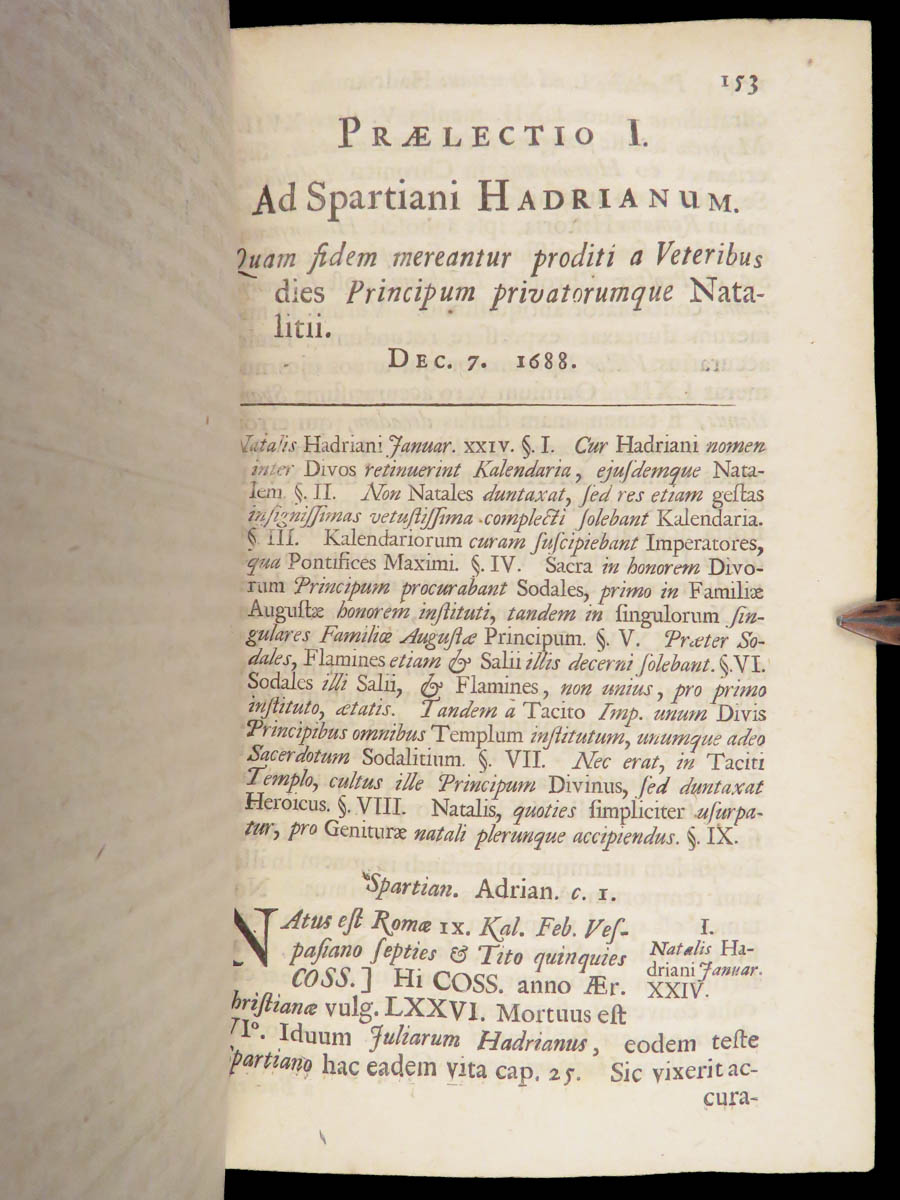 153
PRÆLECTIO I.
Ad Spartiani HADRIANUM.
Quam fidem mereantur proditi a Veteribus
dies Principum privatorumque Nata-
litii.
DEC. 7. 1688.
Natalis Hadriani Januar. XXIV. §. I. Cur Hadriani nomen
inter Divos retinuerint Kalendaria, ejuſdemque Nata-
lem §. II. Non Natales duntaxat, ſed res etiam geſtas
inſigniſſimas vetuſtiſſima complecti ſolebant Kalendaria.
§ III. Kalendariorum curam ſuſcipiebant Imperatores,
qua Pontifices Maximi. §. IV. Sacra in honorem Divo-
rum Principum procurabant Sodales, primo in Familiæ
Auguſtæ honorem inſtituti, tandem in ſingulorum ſin-
gulares Familiæ Auguſtæ Principum. §. V. Præter So-
dales, Flamines etiam & Salii illis decerni ſolebant. §. VI.
Sodales illi Salii, & Flamines, non unius, pro primo
inſtituto, ætatis. Tandem a Tacito Imp. unum Divis
Principibus omnibus Templum inſtitutum, unumque adeo
Sacerdotum Sodalitium. §. VII. Nec erat, in Taciti
Templo, cultus ille Principum Divinus, ſed duntaxat
Heroicus. §. VIII. Natalis, quoties ſimpliciter uſurpa-
tur, pro Genituræ natali plerunque accipiendus. §. IX.
Spartian. Adrian. c. 1.
NAtus eſt Romæ IX. Kal. Feb. Veſ-
paſiano ſepties & Tito quinquies
COSS.] Hi COSS. anno Ær.
hriſtianæ vulg. LXXVI. Mortuus eſt
VIº. Iduum Juliarum Hadrianus, eodem teſte
Spartiano hac eadem vita cap. 25. Sic vixerit ac-
cura-
I.
Natalis Ha-
driani Januar.
XXIV.